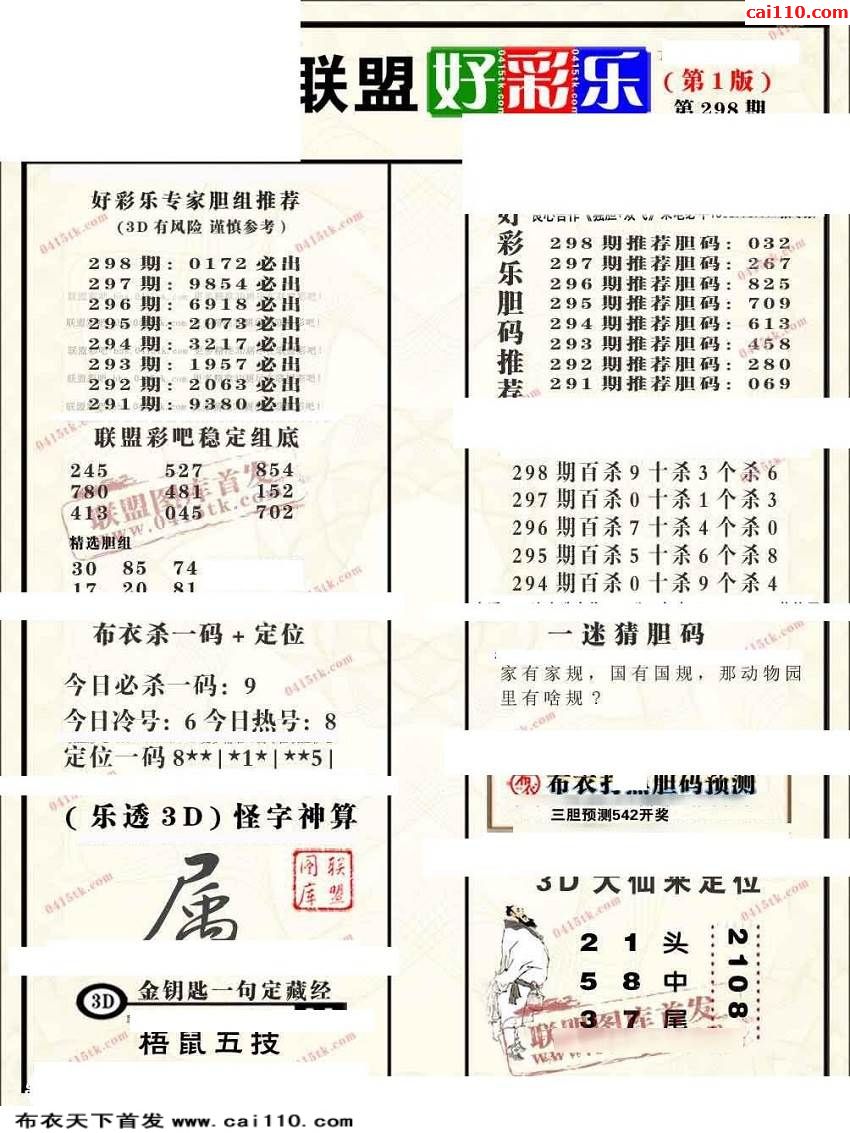 cai110.com
联盟好彩乐
(第1版)
第298期
好彩乐专家胆组推荐
(3D有风险 谨慎参考)
298期: 0172必出
297期: 9854必出
296期: 6918必出
295期: 2073必出
294期: 3217必出
293期: 1957必出
292期: 2063必出
291期: 9380必出
联盟彩吧稳定组底
245 527 854
780 481 152
413 045 702
精选胆组
30 85 74
17 20 81
布衣杀一码+定位
今日必杀一码: 9
今日冷号: 6 今日热号: 8
定位一码 8**|*1*|**5|
(乐透3D)怪字神算
属
联盟图库
3D 金钥匙一句定藏经
梧鼠五技
好彩乐胆码推荐
298期推荐胆码: 032
297期推荐胆码: 267
296期推荐胆码: 825
295期推荐胆码: 709
294期推荐胆码: 613
293期推荐胆码: 458
292期推荐胆码: 280
291期推荐胆码: 069
298期百杀9十杀3个杀6
297期百杀0十杀1个杀3
296期百杀7十杀4个杀0
295期百杀5十杀6个杀8
294期百杀0十杀9个杀4
一迷猜胆码
家有家规，国有国规，那动物园
里有啥规？
胆码预测
三胆预测542开奖
3D大仙来定位
2 1 头
5 8 中
3 7 尾
2108
联盟图库首发
www.0415tk.com
布衣天下首发 www.cai110.com